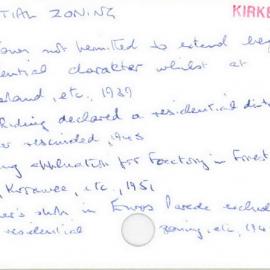 TIAL ZONING KIRKE
not permitted to extend
ential character whilst at
land, etc, 1939
Riding declared a residential dist
rescinded, 1945
ng application for Factory in Forest
, Kirrawee, etc., 1951
er's shop in Parade exclud
residential zoning, etc, 194